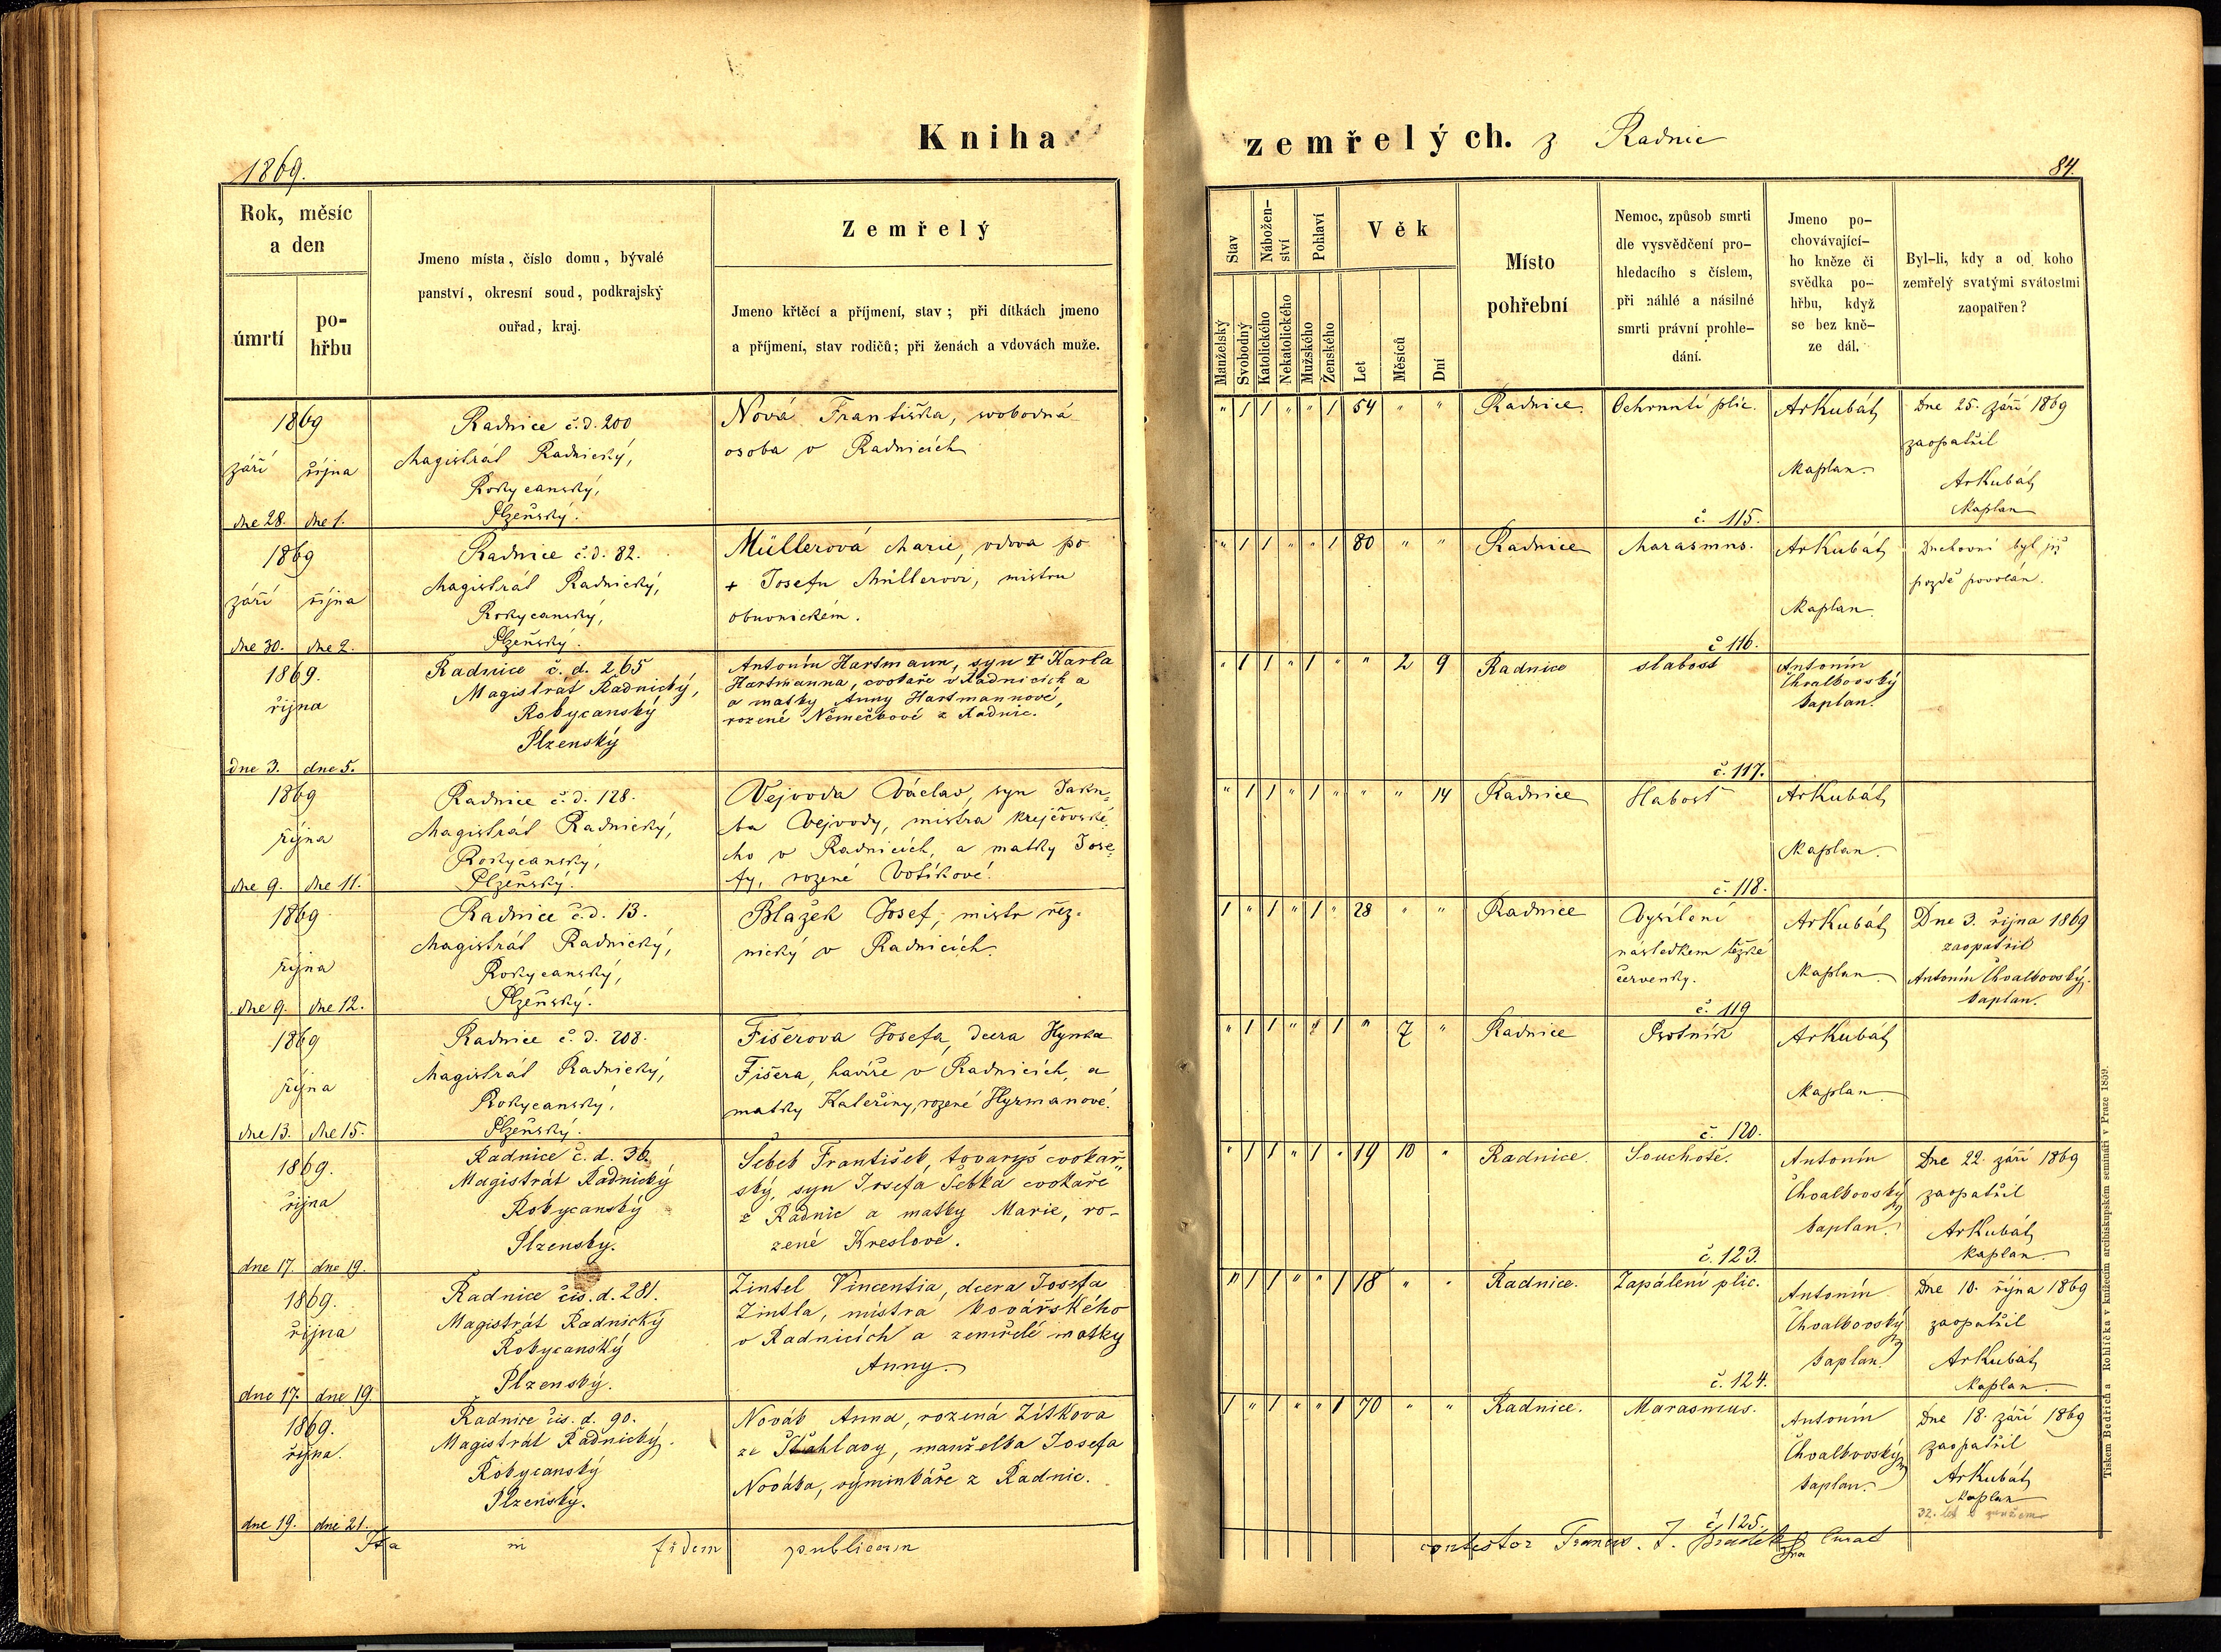 Kniha
zemřelých. z Radnic
1869.
84.
Rok, měsíc
a den
úmrtí
po-
hřbu
Jmeno místa, číslo domu, bývalé
panství, okresní soud, podkrajský
ouřad, kraj.
Zemřelý
Jmeno křtěcí a příjmení, stav; při dítkách jmeno
a příjmení, stav rodičů; při ženách a vdovách muže.
Stav
Nábožen-
ství
Pohlaví
Věk
Manželský
Svobodný
Katolického
Nekatolického
Mužského
Ženského
Let
Měsíců
Dní
Místo
pohřební
Nemoc, způsob smrti
dle vysvědčení pro-
hledacího s číslem,
při náhlé a násilné
smrti právní prohle-
dání.
Jmeno po-
chovávající-
ho kněze či
svědka po-
hřbu, když
se bez kně-
ze dál.
Byl-li, kdy a od koho
zemřelý svatými svátostmi
zaopatřen?
1869
září října
dne 28. dne 1.
Radnice č.d. 200
Magistrát Radnický,
Rokycanský,
Plzeňský.
Nová Františka, svobodná
osoba v Radnicích
" 1 1 " " 1 54 " "
Radnice.
Ochrnutí plic.
č. 115.
ArKubát,
Kaplan.
Dne 25. září 1869
zaopatřil
ArKubát,
Kaplan
1869
září října
dne 30. dne 2.
Radnice č.d. 82.
Magistrát Radnický,
Rokycanský,
Plzeňský.
Müllerová Marie, vdova po
+ Josefu Müllerovi, mistru
obuvnickém.
" 1 1 " " 1 80 " "
Radnice
Marasmus.
č 116.
ArKubát,
Kaplan.
Duchovní byl již
pozdě povolán.
1869.
října
dne 3. dne 5.
Radnice č. d. 265
Magistrát Radnický,
Rokycanský
Plzenský
Antonín Hartmann, syn + Karla
Hartmanna, cvokaře v Radnicích a
a matky Anny Hartmannové,
rozené Němečkové z Radnic.
" 1 1 " 1 " " 2 9
Radnice
slabost
č. 117.
Antonín
Chvalbovský
kaplan.
1869
října
dne 9. dne 11.
Radnice č.d. 128.
Magistrát Radnický,
Rokycanský,
Plzeňský.
Vejvoda Václav, syn Jaku-
ba Vejvody, mistra krejčovské-
ho v Radnicích, a matky Jose-
fy, rozené Votíkové.
" 1 1 " 1 " " " 14
Radnice
Slabost
č. 118.
ArKubát,
Kaplan.
1869
října
dne 9. dne 12.
Radnice č.d. 13.
Magistrát Radnický,
Rokycanský,
Plzeňský.
Blažek Josef, mistr řez-
nický v Radnicích.
1 " 1 " 1 " 28 " "
Radnice
Vysílení
následkem těžké
červenky.
č. 119
ArKubát,
Kaplan
Dne 3. října 1869
zaopatřil
Antonín Chvalbovský,
kaplan.
1869
října
dne 13. dne 15.
Radnice č. d. 208.
Magistrát Radnický,
Rokycanský,
Plzeňský.
Fišerova Josefa, dcera Hynka
Fišera, havíře v Radnicích, a
matky Kateřiny, rozené Hyrmanové.
" 1 1 " " 1 " 7 "
Radnice
Psotník
č. 120.
ArKubát,
Kaplan
1869.
října
dne 17. dne 19.
Radnice č. d. 36.
Magistrát Radnický
Rokycanský
Plzenský.
Šebek František, tovaryš cvokař-
ský, syn Josefa Šebka cvokaře
z Radnic a matky Marie, ro-
zené Kreslové.
" 1 1 " 1 " 19 10 "
Radnice.
Souchotě.
č. 123.
Antonín
Chvalbovský
kaplan.
Dne 22. září 1869
zaopatřil
ArKubát,
Kaplan
1869.
října
dne 17. dne 19.
Radnice čís. d. 281.
Magistrát Radnický
Rokycanský
Plzenský.
Zintel Vincentia, dcera Josefa
Zintla, mistra kovářského
v Radnicích a zemřelé matky
Anny.
" 1 1 " " 1 18 " "
Radnice.
Zapálení plic.
č. 124.
Antonín
Chvalbovský
kaplan.
Dne 10. října 1869
zaopatřil
ArKubát,
Kaplan.
1869.
října.
dne 19. dne 21.
Radnice čís. d. 90.
Magistrát Radnický.
Rokycanský
Plzenský.
Novák Anna, rozená Zítkova
ze Šťahlavy, manželka Josefa
Nováka, výminkáře z Radnic.
1 " 1 " " 1 70 " "
Radnice.
Marasmus.
č. 125.
Antonín
Chvalbovský
kaplan.
Dne 18. září 1869
zaopatřil
ArKubát,
Kaplan
32. let
Ita in fidem publicam
contestor Franc. J. Curat
Tiskem Bedřicha Rohlíčka v knížecím arcibiskupském semináři v Praze 1859.